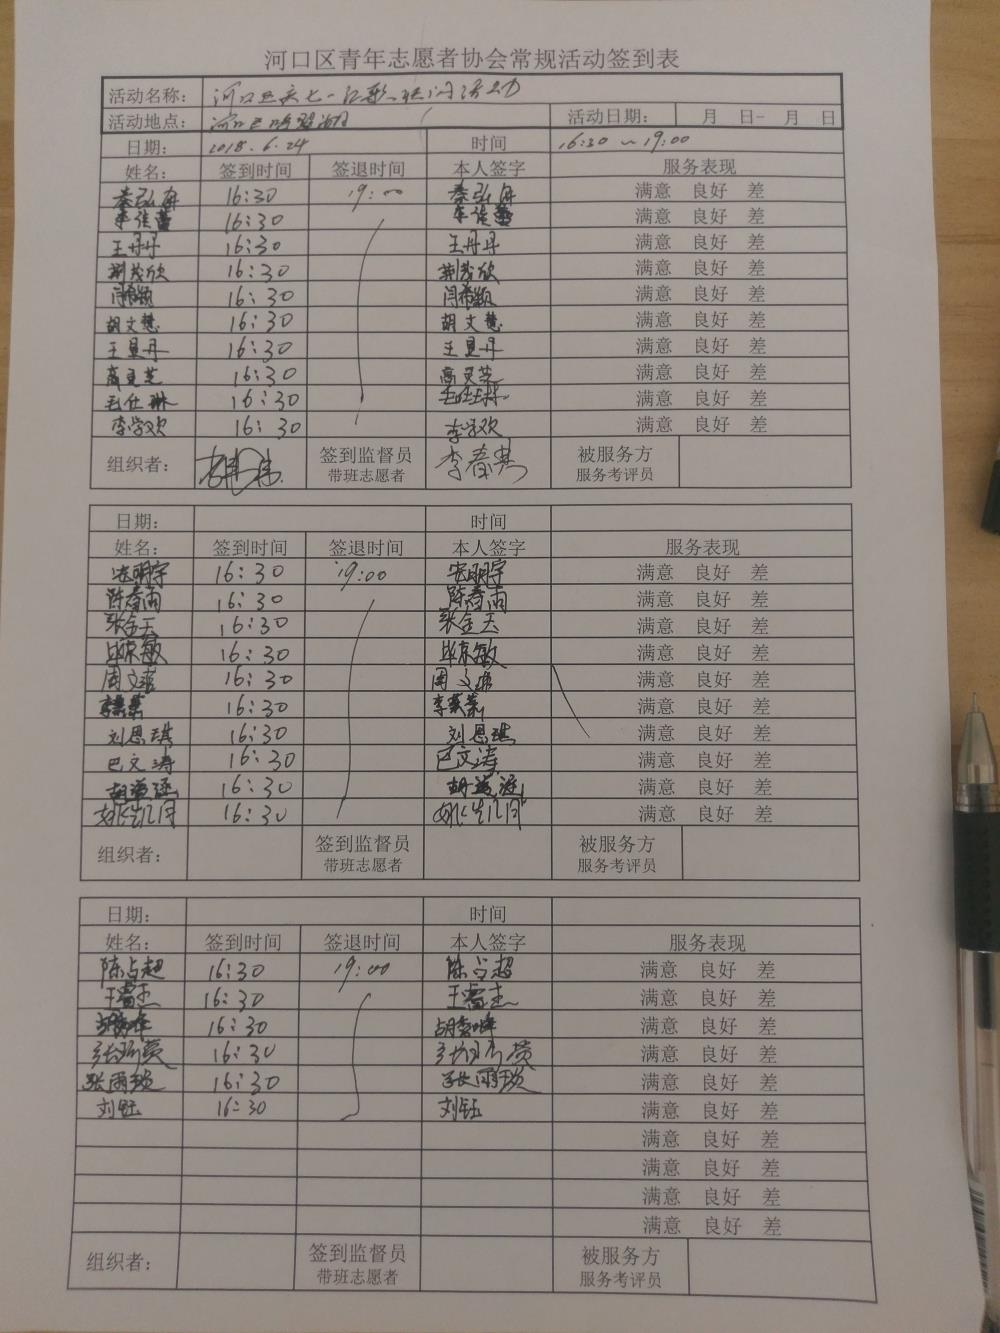 河口区青年志愿者协会常规活动签到表
活动名称： 河口区庆七一红歌 活动
活动地点： 河口区鸣翠湖 活动日期： 月 日- 月 日
日期： 2018.6.24 时间 16:30～19:00
姓名： 签到时间 签退时间 本人签字 服务表现
秦弘冉 16:30 19:00 秦弘冉 满意 良好 差
李佳 16:30 李佳 满意 良好 差
王丹丹 16:30 王丹丹 满意 良好 差
荆茂欣 16:30 荆茂欣 满意 良好 差
闫希颖 16:30 闫希颖 满意 良好 差
胡文慧 16:30 胡文慧 满意 良好 差
王昱丹 16:30 王昱丹 满意 良好 差
高灵芝 16:30 高灵芝 满意 良好 差
毛仕琳 16:30 毛仕琳 满意 良好 差
李学欢 16:30 李学欢 满意 良好 差
组织者： 签到监督员 李春 被服务方
带班志愿者 服务考评员
日期： 时间
姓名： 签到时间 签退时间 本人签字 服务表现
明宇 16:30 19:00 明宇 满意 良好 差
陈春雨 16:30 陈春雨 满意 良好 差
张金天 16:30 张金天 满意 良好 差
毕京敏 16:30 毕京敏 满意 良好 差
周文 16:30 周文 满意 良好 差
李 16:30 李 满意 良好 差
刘恩琪 16:30 刘恩琪 满意 良好 差
巴文涛 16:30 巴文涛 满意 良好 差
胡 涵 16:30 胡 涵 满意 良好 差
姚凯月 16:30 姚凯月 满意 良好 差
组织者： 签到监督员 被服务方
带班志愿者 服务考评员
日期： 时间
姓名： 签到时间 签退时间 本人签字 服务表现
陈占超 16:30 19:00 陈占超 满意 良好 差
王睿杰 16:30 王睿杰 满意 良好 差
胡 16:30 胡 满意 良好 差
16:30 满意 良好 差
张雨 16:30 张雨 满意 良好 差
刘钰 16:30 刘钰 满意 良好 差
满意 良好 差
满意 良好 差
满意 良好 差
满意 良好 差
组织者： 签到监督员 被服务方
带班志愿者 服务考评员